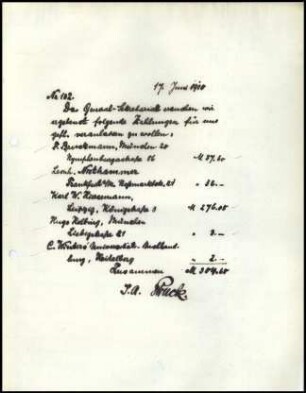 17. Juni 1910
No 102.
Das General-Sekretariat ersuchen wir
ergebenst folgende Zahlungen für uns
gefl. veranlassen zu wollen:
F. Bruckmann, München 20
Nymphenburgerstraße 86 M 57.60
Leonh.
Frankfurt a/M. 21
Karl W. Hiersemann,
Leipzig, Königstraße 3 M 276.05
Hugo Helbing, München
Liebigstraße 21 " 3.—
C. Winters Universitäts-Buchhand-
lung, Heidelberg " 2.—
Zusammen
I. A.